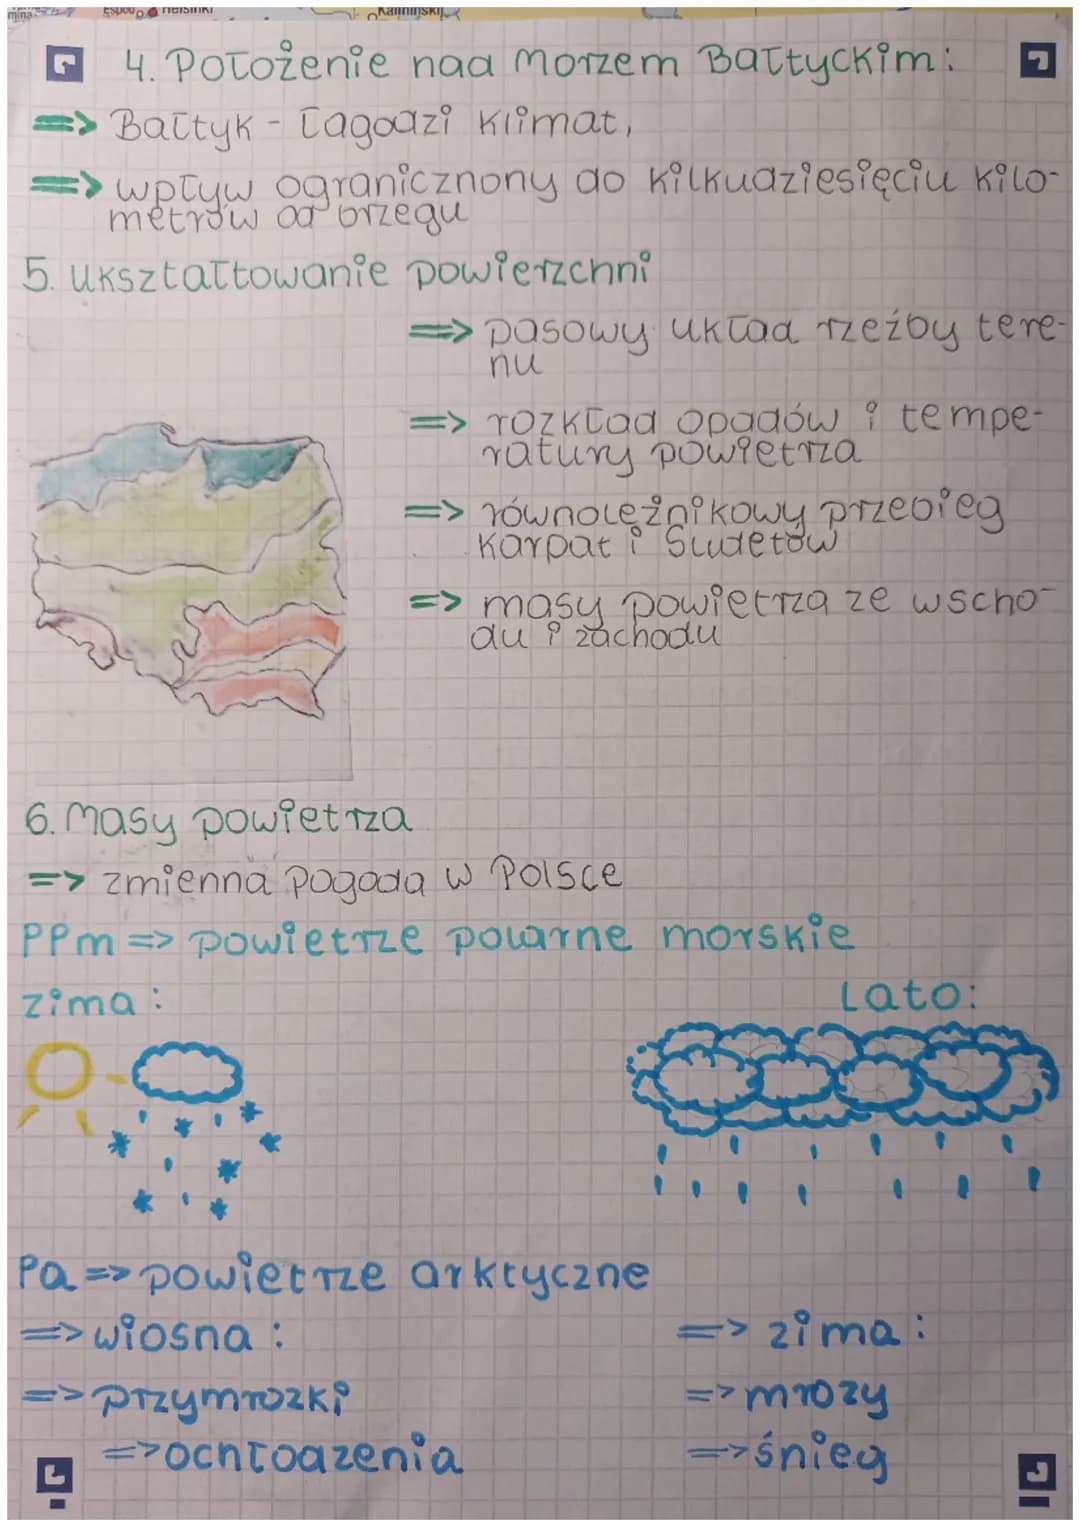 Espoo Helsinki Kaliningrad
4. Położenie nad morzem Bałtyckim:
=> Bałtyk - łagodzi klimat,
=> wpływ ogranicznony do kilkudziesięciu kilo-
metrów od brzegu
5. ukształtowanie powierzchni
=> pasowy układ rzeźby tere-
nu
=> rozkład opadów i tempe-
ratury powietrza
=> równoleżnikowy przebieg
Karpat i Sudetów
=> masy powietrza ze wscho-
du i zachodu
6. Masy powietrza
=> zmienna pogoda w Polsce
PPm => powietrze polarne morskie
zima:
Lato:
Pa => powietrze arktyczne
=> wiosna:
=> zima:
=> przymrozki
=> mrozy
=> ochłodzenia
=> śnieg